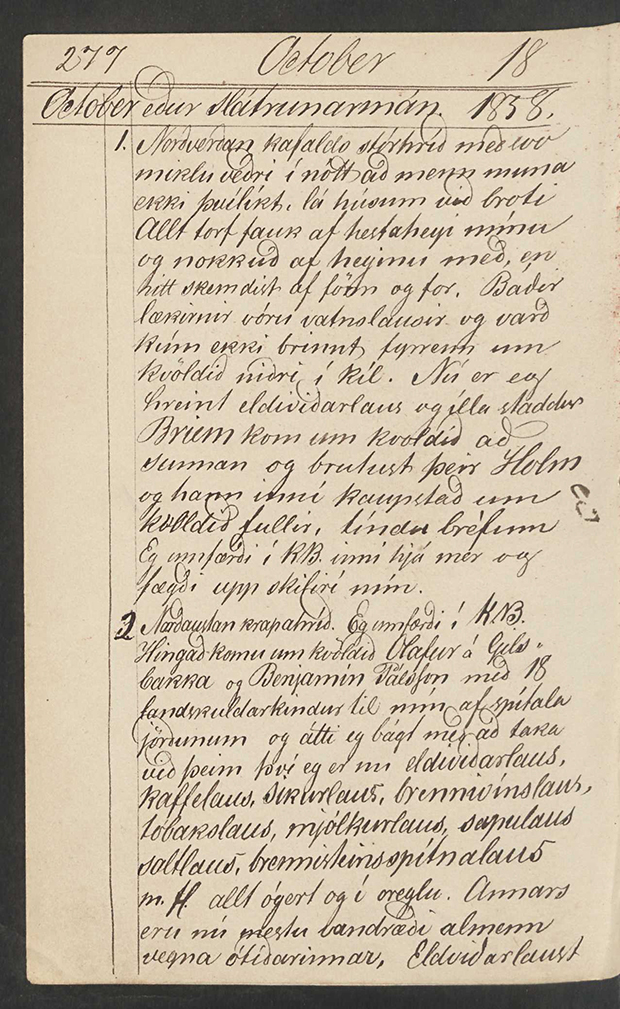 277 October 18
October eður slátrunarmán. 1858.
1. Norðverdan kafalds stórhríð með svo
miklu veðri í nótt að menn muna
ekki þvílíkt, lá húsum við broti
Allt torf fauk af hestaheyi mínu
og nokkuð af heyinu með, en
hitt skemdist af fönn og for. Báðir
lækirnir vóru vatnslausir og varð
kúm ekki brinnt fyrrenn um
kvöldið niðri í kíl. Nú er eg
hreint eldiviðarlaus og illa staddur
Briem kom um kvöldið að
sunnan og brutust þeir Holm
og hann inní kaupstað um
kvöldið fullir, tíndu bréfum
Eg innfærði í KB. inni hjá mér og
fægði upp skifirí mín.
2 Norðaustan krapahríð. Eg innfærði í KB.
Hingað komu um kvöldið Ólafur á Gils-
bakka og Benjamín Pálsson með 18
landskuldarkindur til mín af spítala
jörðunum og átti eg bágt með að taka
við þeim því eg er nú eldiviðarlaus,
kaffelaus, sikurlaus, brennivínslaus,
tóbakslaus, mjólkurlaus, sapulaus
saltlaus, brennisteinsspítnalaus
m. fl. allt ógert og í oreglu. Annars
eru nú mestu vandræði almenn
vegna ótíðarinnar, Eldiviðarlaust